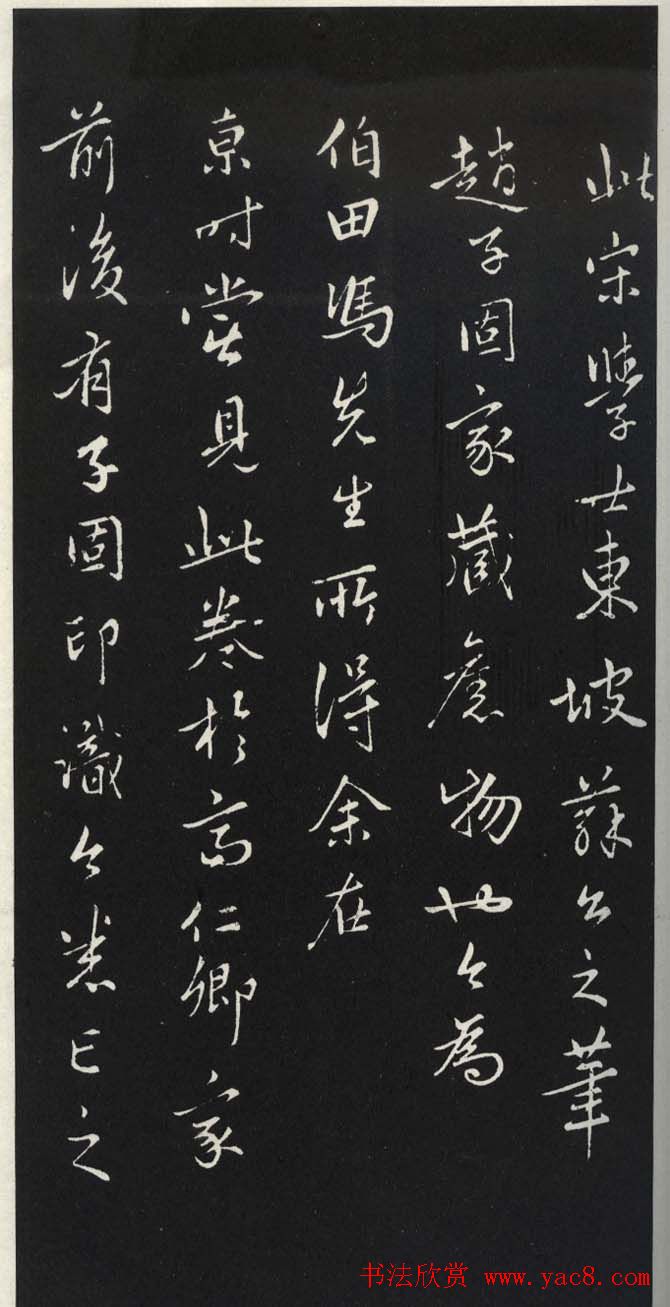 此宋學士東坡蘇公之筆
趙子固家藏舊物也今為
伯田馮先生所得余在
京時嘗見此卷於高仁卿家
前後有子固印識今悉亡之
书法欣赏 www.yac8.com